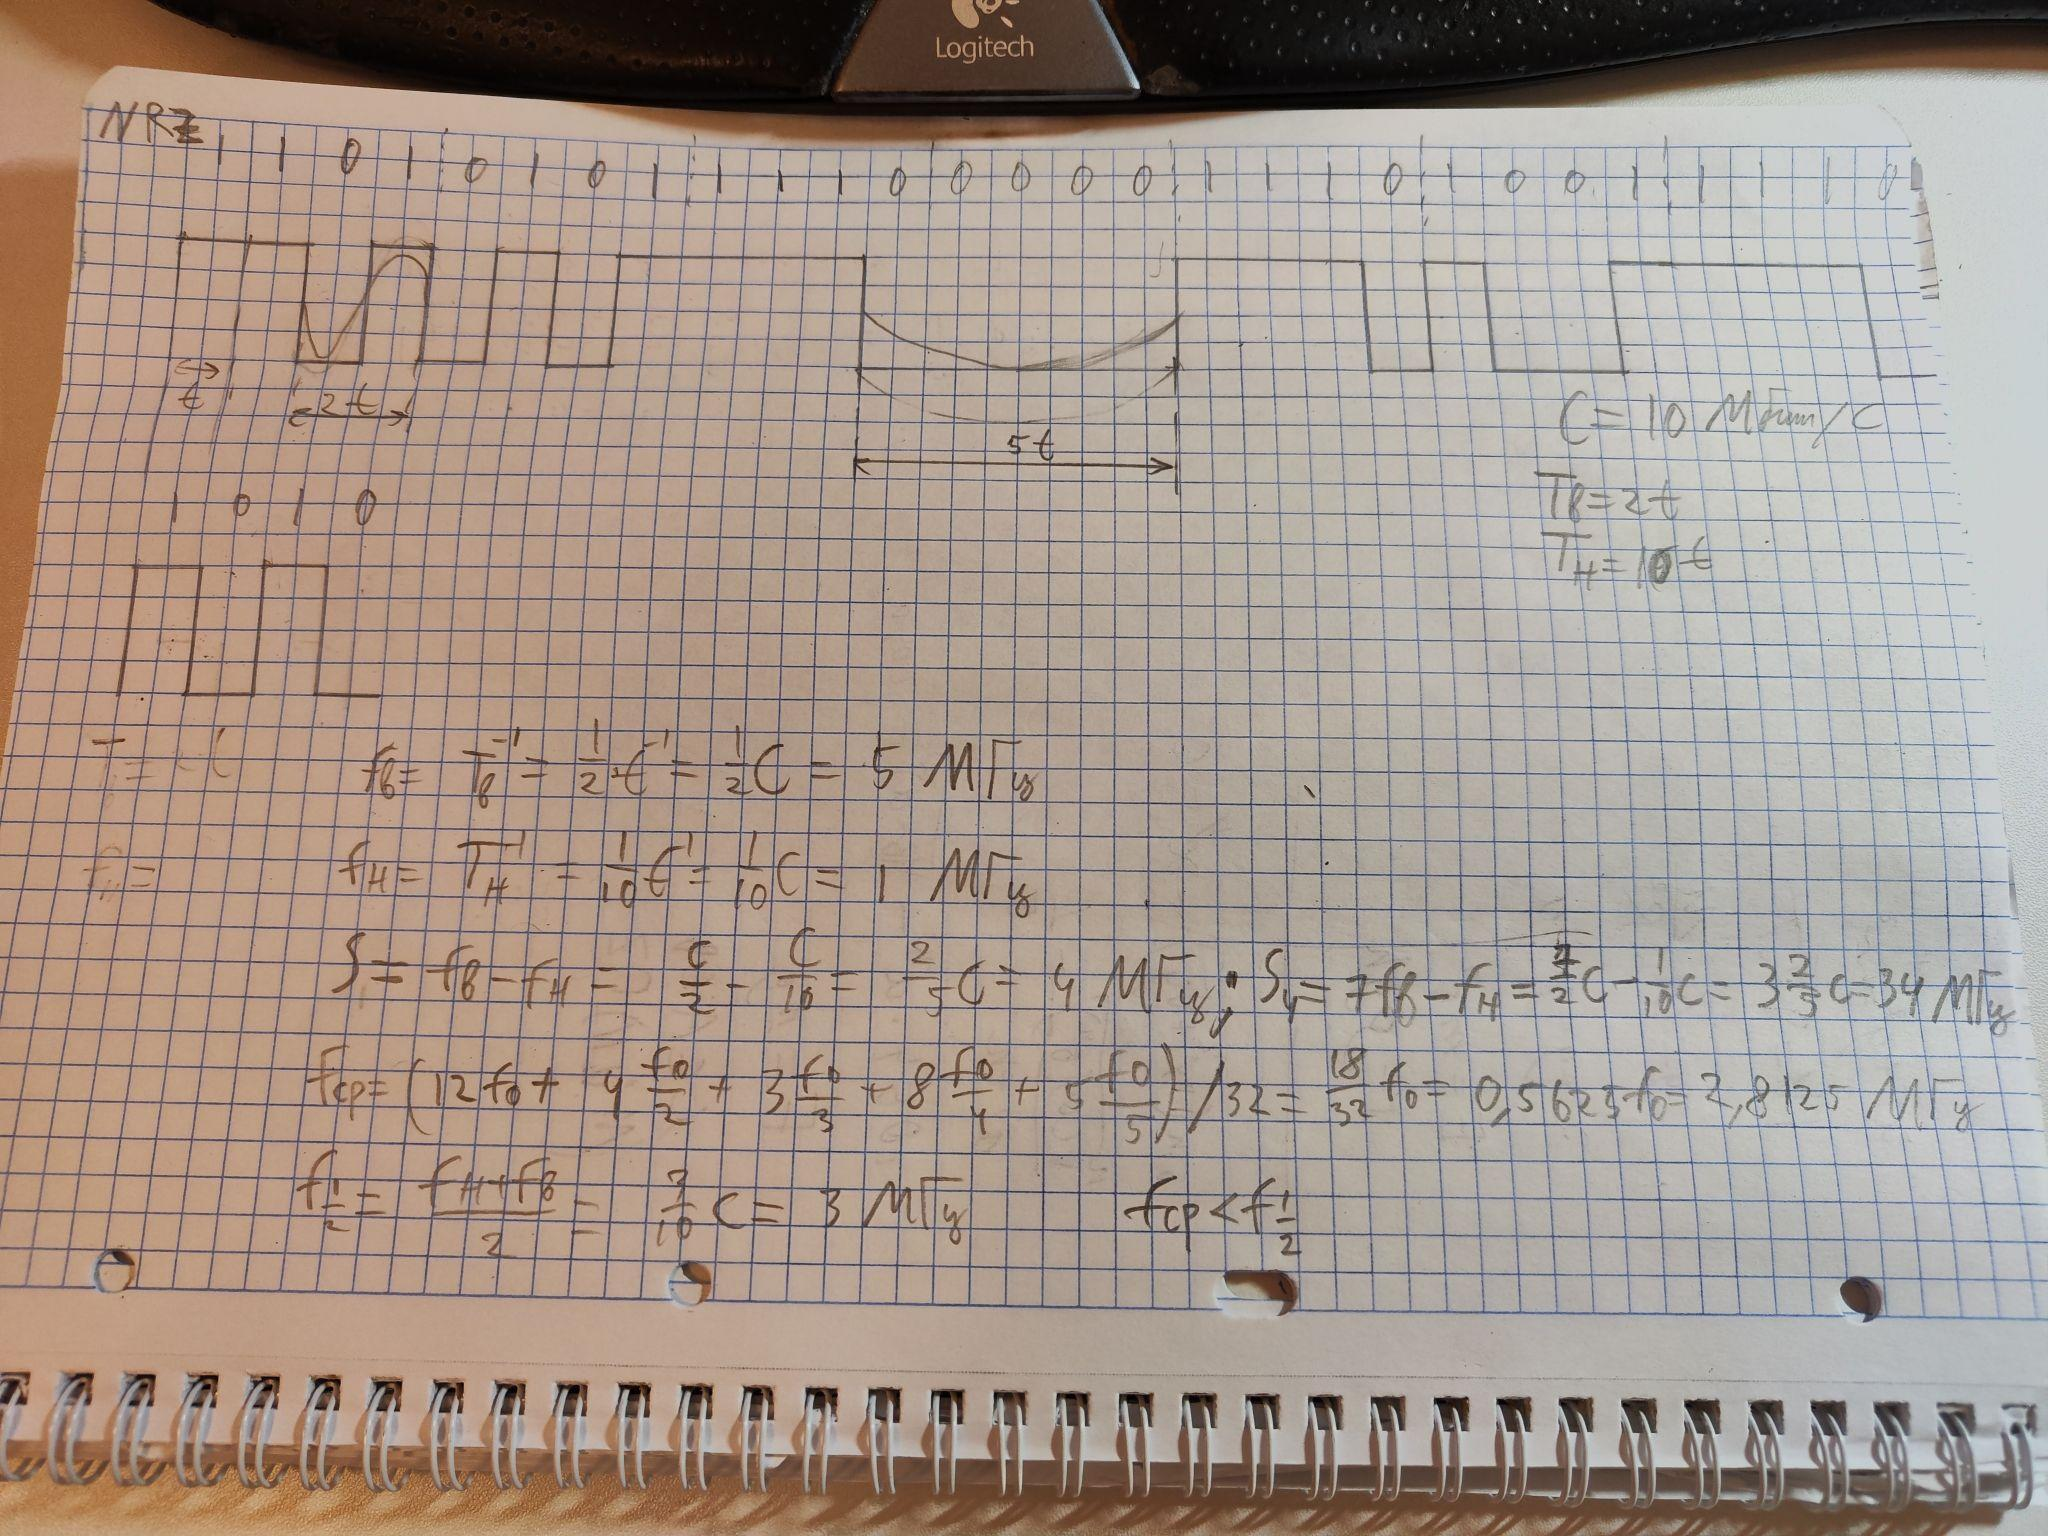 Logitech
NRZ
1 1 0 1 0 1 0 1 1 1 1 0 0 0 0 0 1 1 1 0 1 0 0 1 1 1 1 0
t
2t
5t
C = 10 Мбит/с
Tв = 2t
Tн = 10t
1 0 1 0
fв = Tв⁻¹ = 1/2 t⁻¹ = 1/2 C = 5 МГц
fн = Tн⁻¹ = 1/10 t⁻¹ = 1/10 C = 1 МГц
S = fв - fн = C/2 - C/10 = 2/5 C = 4 МГц; S₄ = 7fв - fн = 7/2 C - 1/10 C = 3 2/5 C = 34 МГц
fср = (12f0 + 4 f0/2 + 3 f0/3 + 8 f0/4 + 5 f0/5) / 32 = 18/32 f0 = 0,5625f0 = 2,8125 МГц
f 1/2 = (fн + fв)/2 = 3/10 C = 3 МГц fср < f 1/2